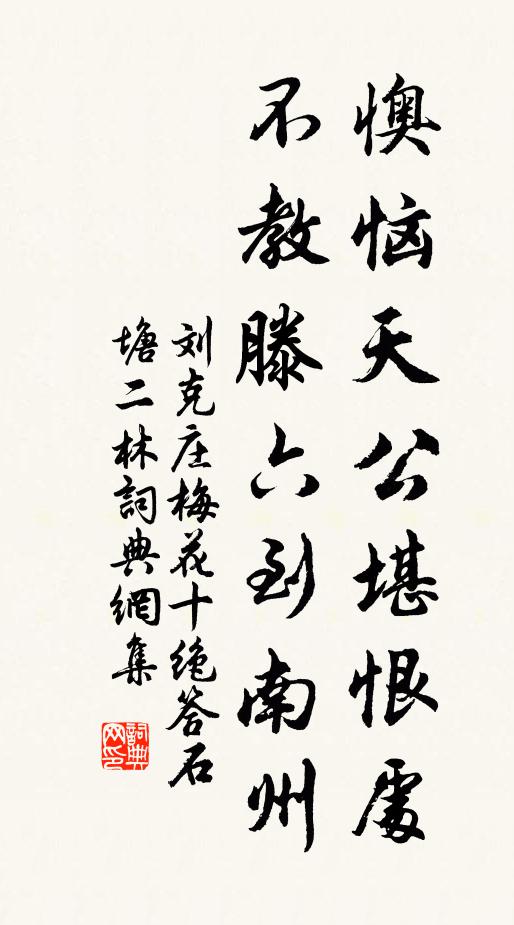 懊恼天公堪恨處
不教滕六到南州
刘克庄梅花十绝答石
塘二林詞典網集
詞典
网印